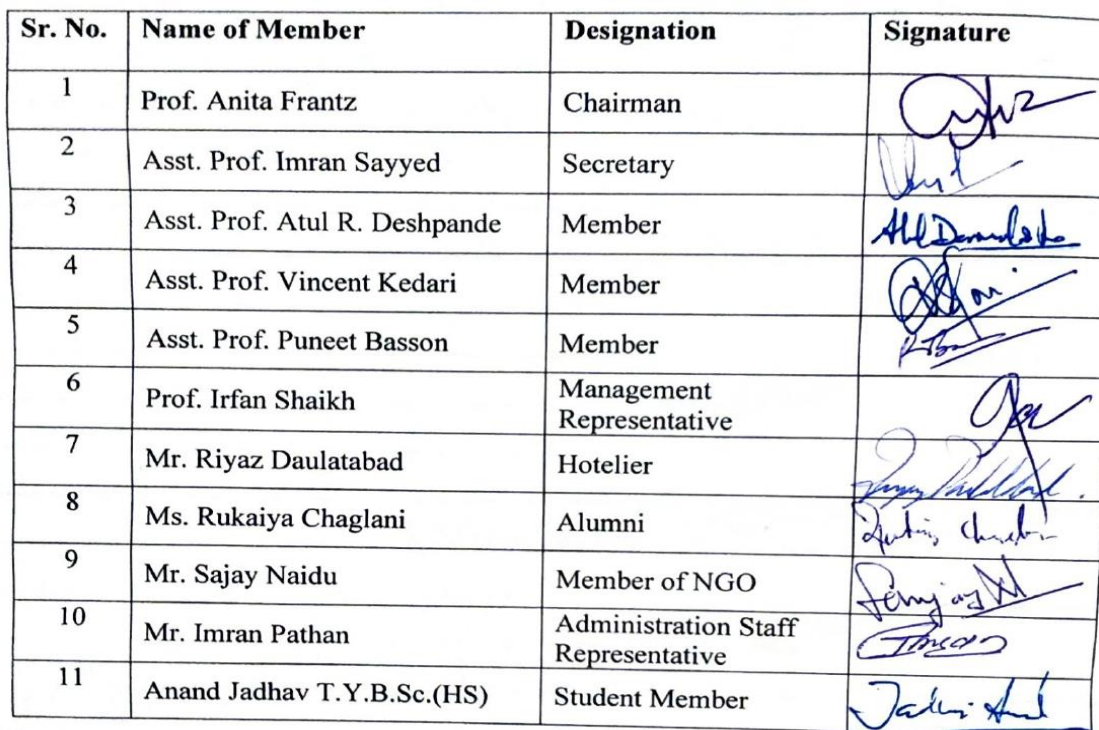 Sr. No. Name of Member Designation Signature
1 Prof. Anita Frantz Chairman
2 Asst. Prof. Imran Sayyed Secretary
3 Asst. Prof. Atul R. Deshpande Member
4 Asst. Prof. Vincent Kedari Member
5 Asst. Prof. Puneet Basson Member
6 Prof. Irfan Shaikh Management
Representative
7 Mr. Riyaz Daulatabad Hotelier
8 Ms. Rukaiya Chaglani Alumni
9 Mr. Sajay Naidu Member of NGO
10 Mr. Imran Pathan Administration Staff
Representative
11 Anand Jadhav T.Y.B.Sc.(HS) Student Member